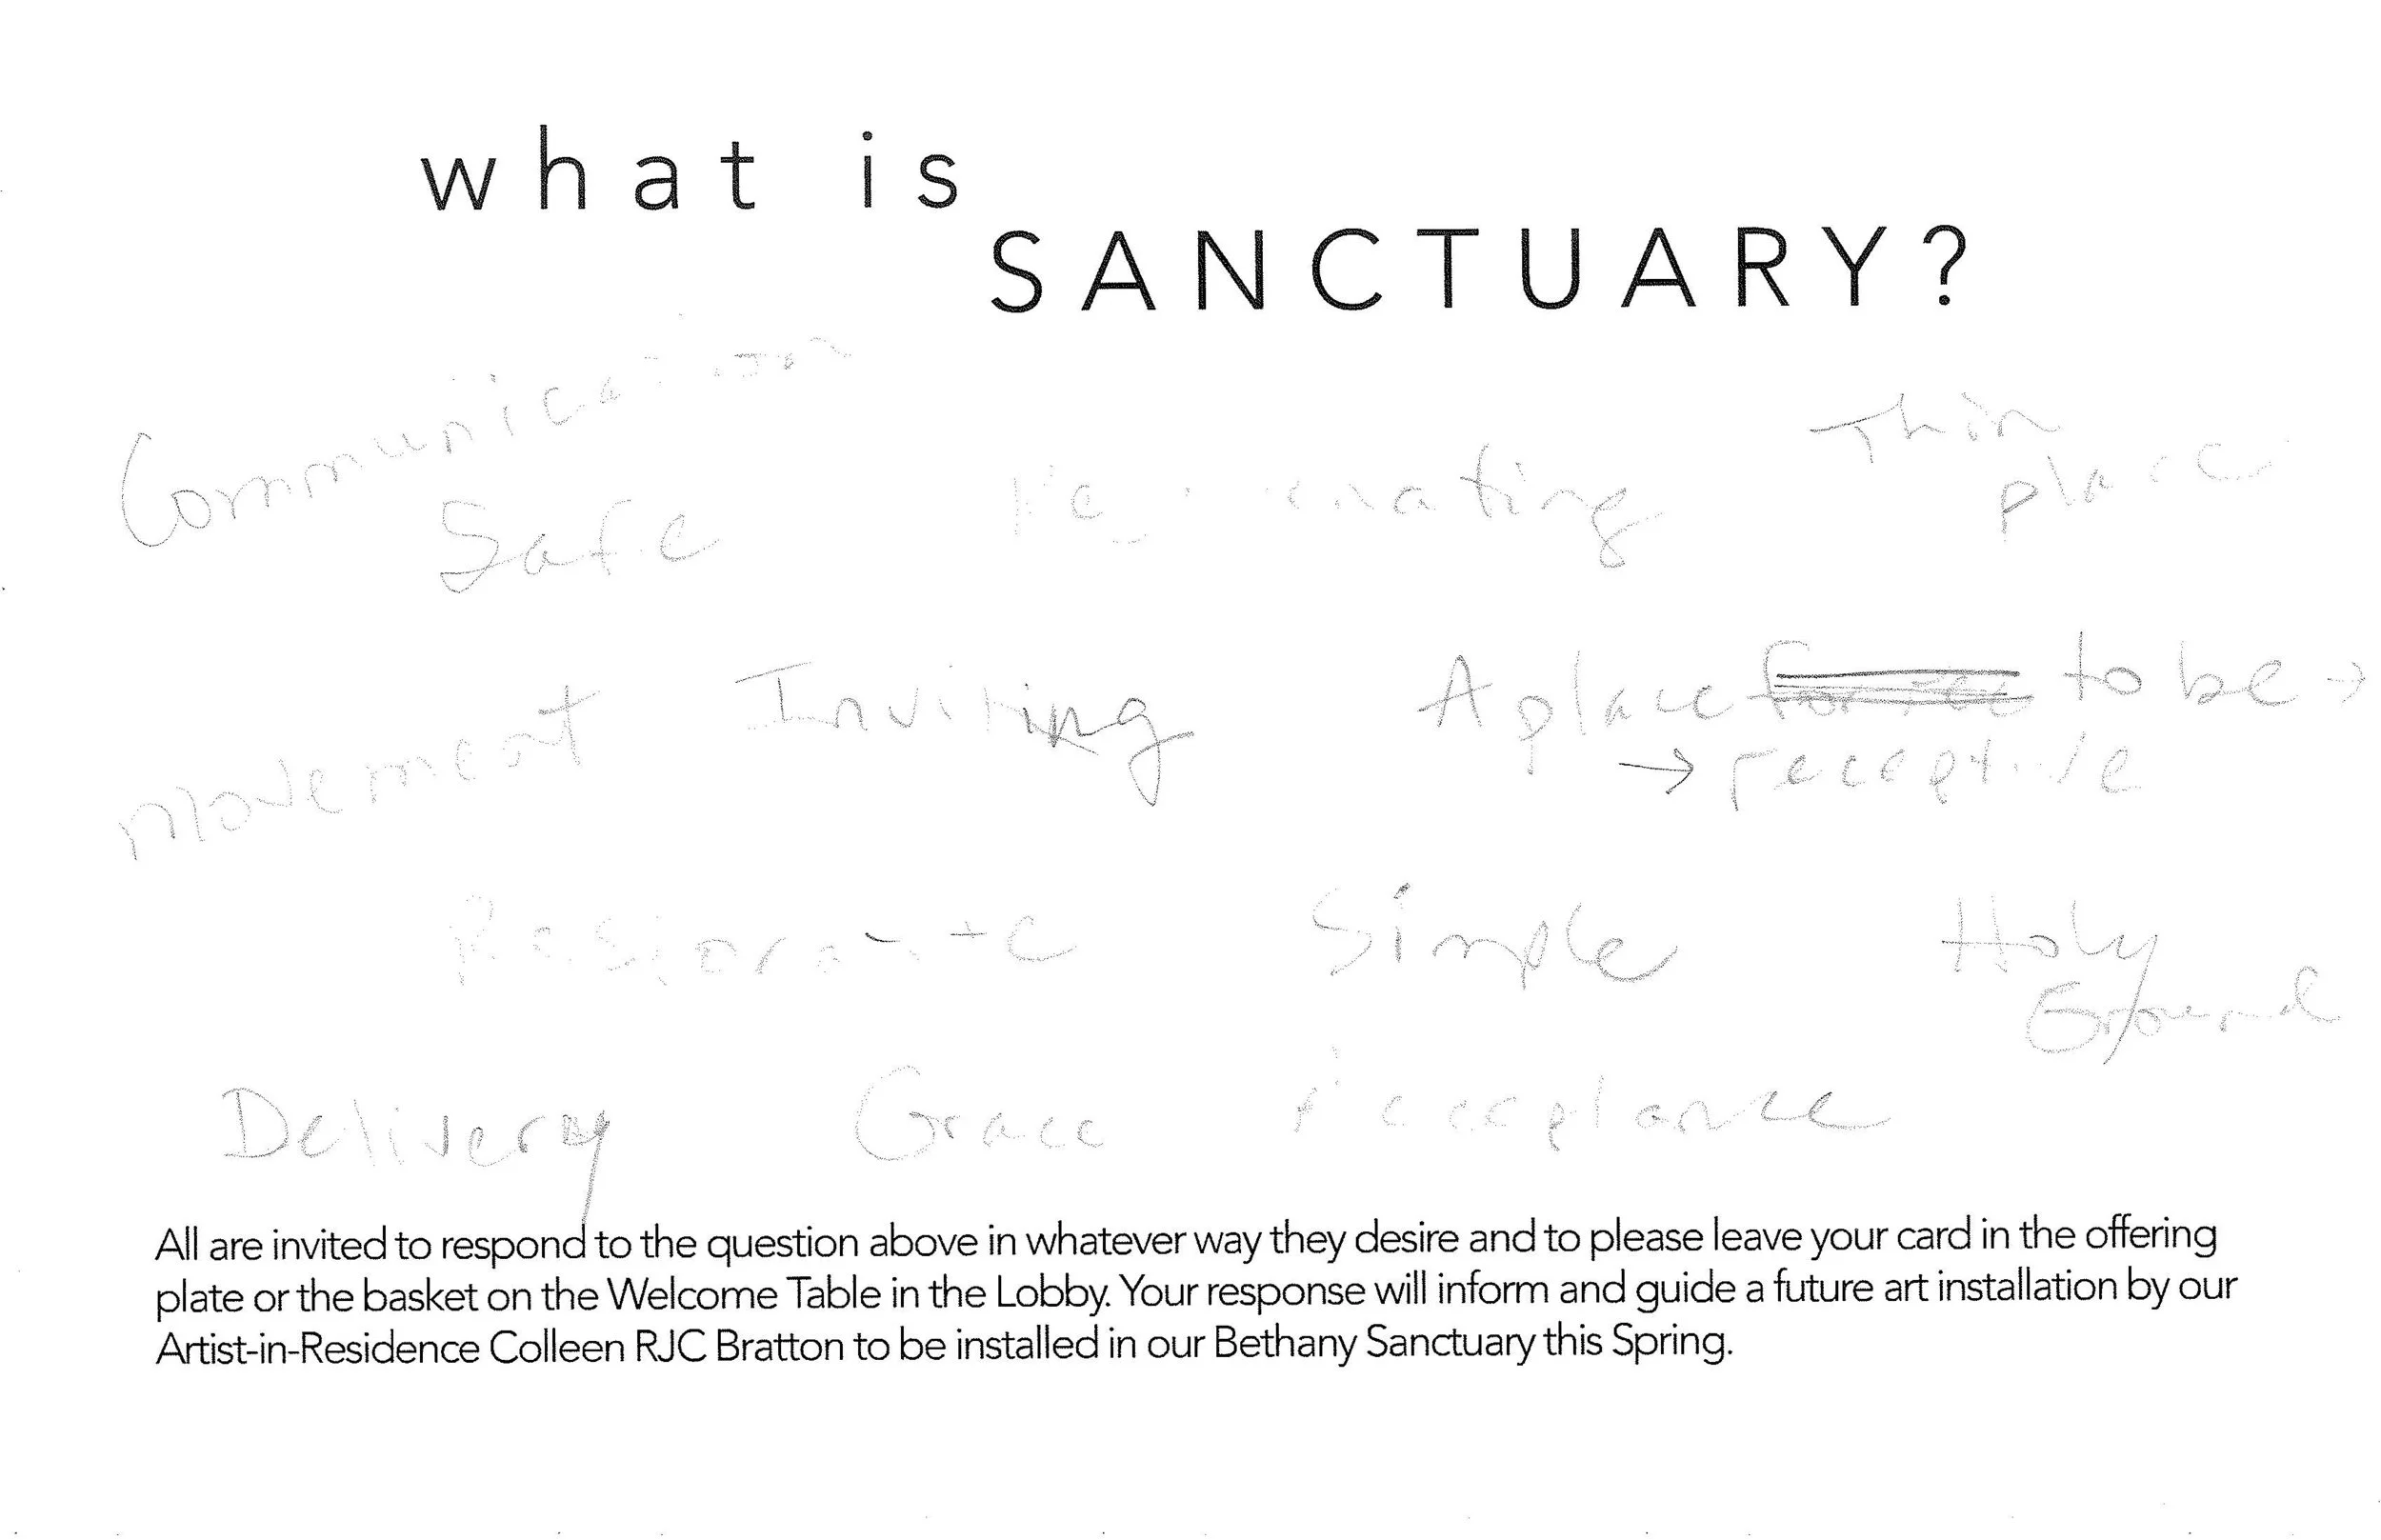 what is
SANCTUARY?
Communication
Thin
Safe
place
Movement Inviting A place to be →
→ receptive
Simple Holy
Ground
Delivery Grace Acceptance
All are invited to respond to the question above in whatever way they desire and to please leave your card in the offering
plate or the basket on the Welcome Table in the Lobby. Your response will inform and guide a future art installation by our
Artist-in-Residence Colleen RJC Bratton to be installed in our Bethany Sanctuary this Spring.